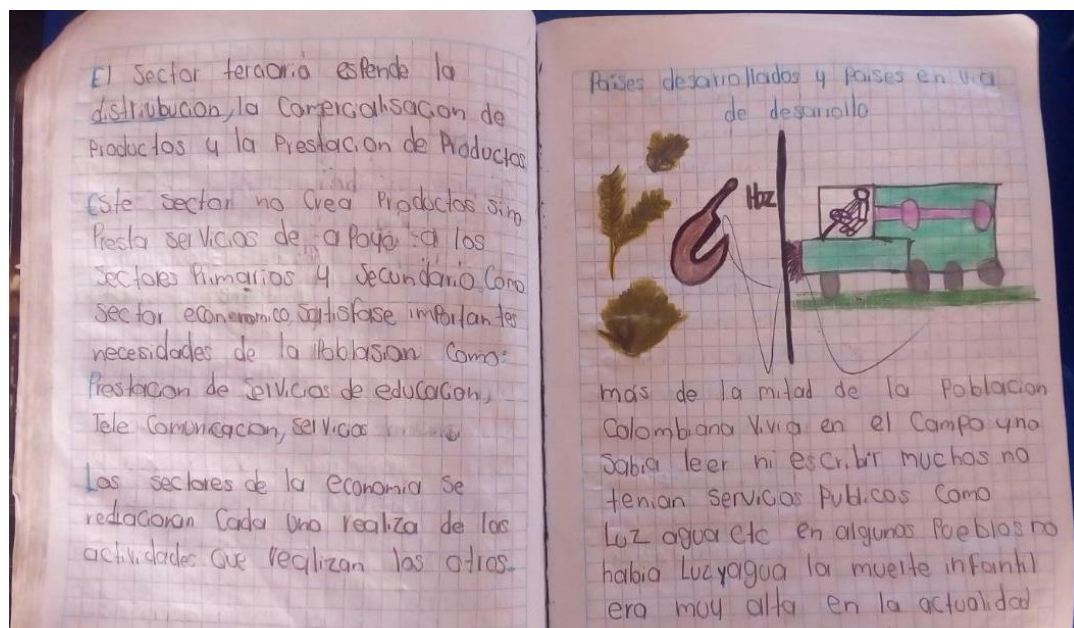 El sector tercaorio espende la
distriubucion, la Comercialisacion de
Productos y la Prestacion de Productos
Este sector no Crea Productos sino
Presta servicios de apoyo a los
sectores Primarios y secundario. Como
sector econemomico, satisfase importantes
necesidades de la Poblasion como:
Prestacion de servicios de educacion,
Tele Comunicacion, servicios
Los sectores de la economia se
redlacionan Cada Uno realiza de las
actividades que realizan los otros.
Paises desarrollados y paises en via
de desarrollo
Hoz
más de la mitad de la Poblacion
Colombiana Vivia en el Campo y no
Sabia leer ni escribir muchos no
tenian servicios Publicos Como
Luz agua etc en algunos Pueblos no
habia Luz y agua la muerte infantil
era muy alta en la actualidad